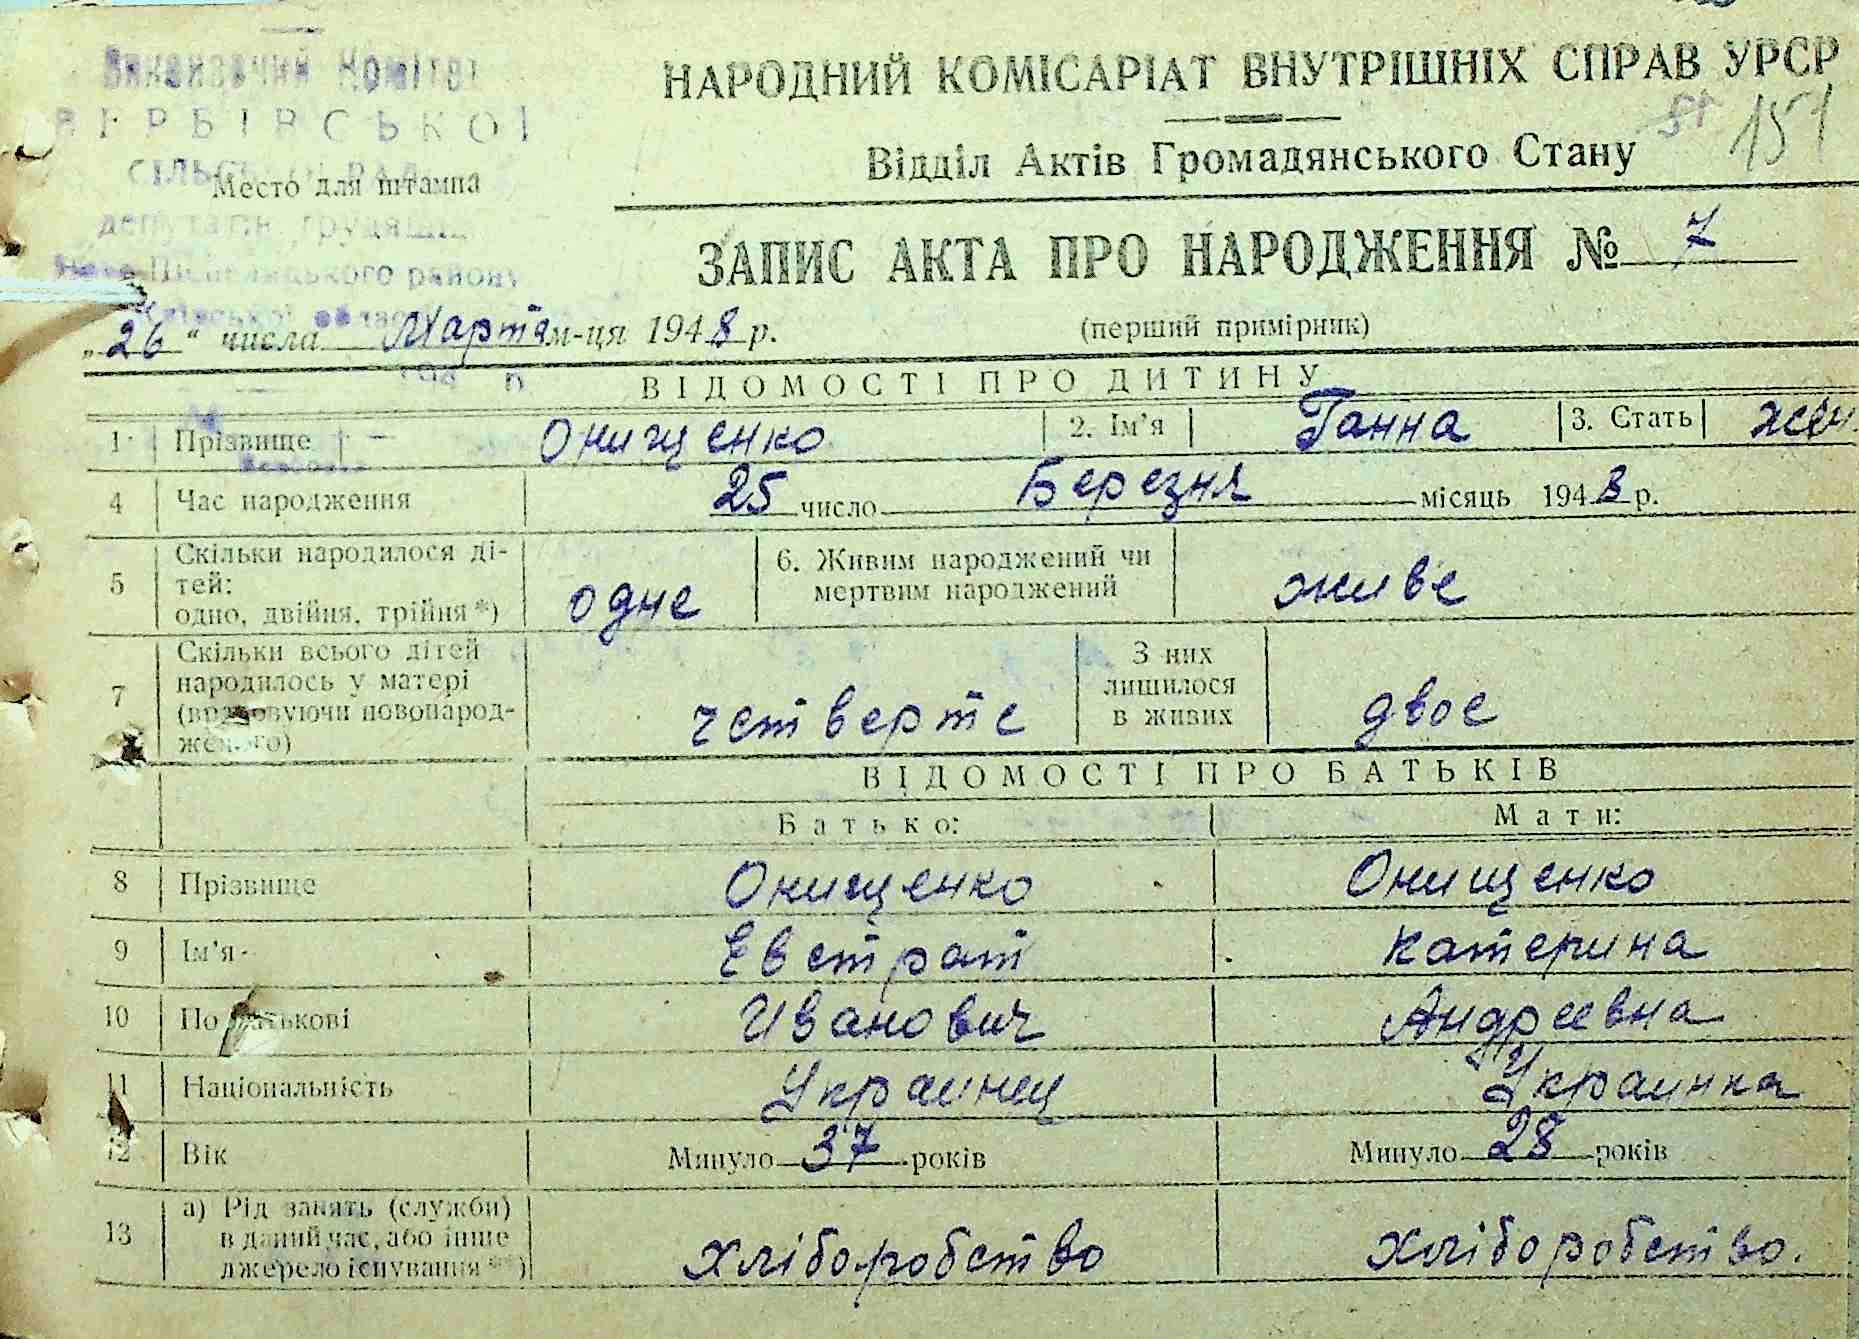 Виконавчий Комітет
ВЕРБІВСЬКОЇ
СІЛЬСЬКОЇ РАДИ
Место для штампа
депутатів трудящих
району
Київської області
НАРОДНИЙ КОМІСАРІАТ ВНУТРІШНІХ СПРАВ УРСР
151
Відділ Актів Громадянського Стану
ЗАПИС АКТА ПРО НАРОДЖЕННЯ № 7
„26“ числа Марта м-ця 1948 р.
(перший примірник)
ВІДОМОСТІ ПРО ДИТИНУ
1 Прізвище Онищенко 2. Ім'я Ганна 3. Стать жен
4 Час народження 25 число Березня місяць 1948 р.
5 Скільки народилося ді-
тей:
одно, двійня, трійня*) одне
6. Живим народжений чи
мертвим народжений живе
7 Скільки всього дітей
народилось у матері
(враховуючи новонарод-
женого) четверте
З них
лишилося
в живих двое
ВІДОМОСТІ ПРО БАТЬКІВ
Батько: Мати:
8 Прізвище Онищенко Онищенко
9 Ім'я Евстрат Катерина
10 По батькові Иванович Андреевна
11 Національність Украинец Украинка
12 Вік Минуло 37 років Минуло 28 років
13 а) Рід занять (служби)
в даний час, або інше
джерело існування**) хліборобство хліборобство.